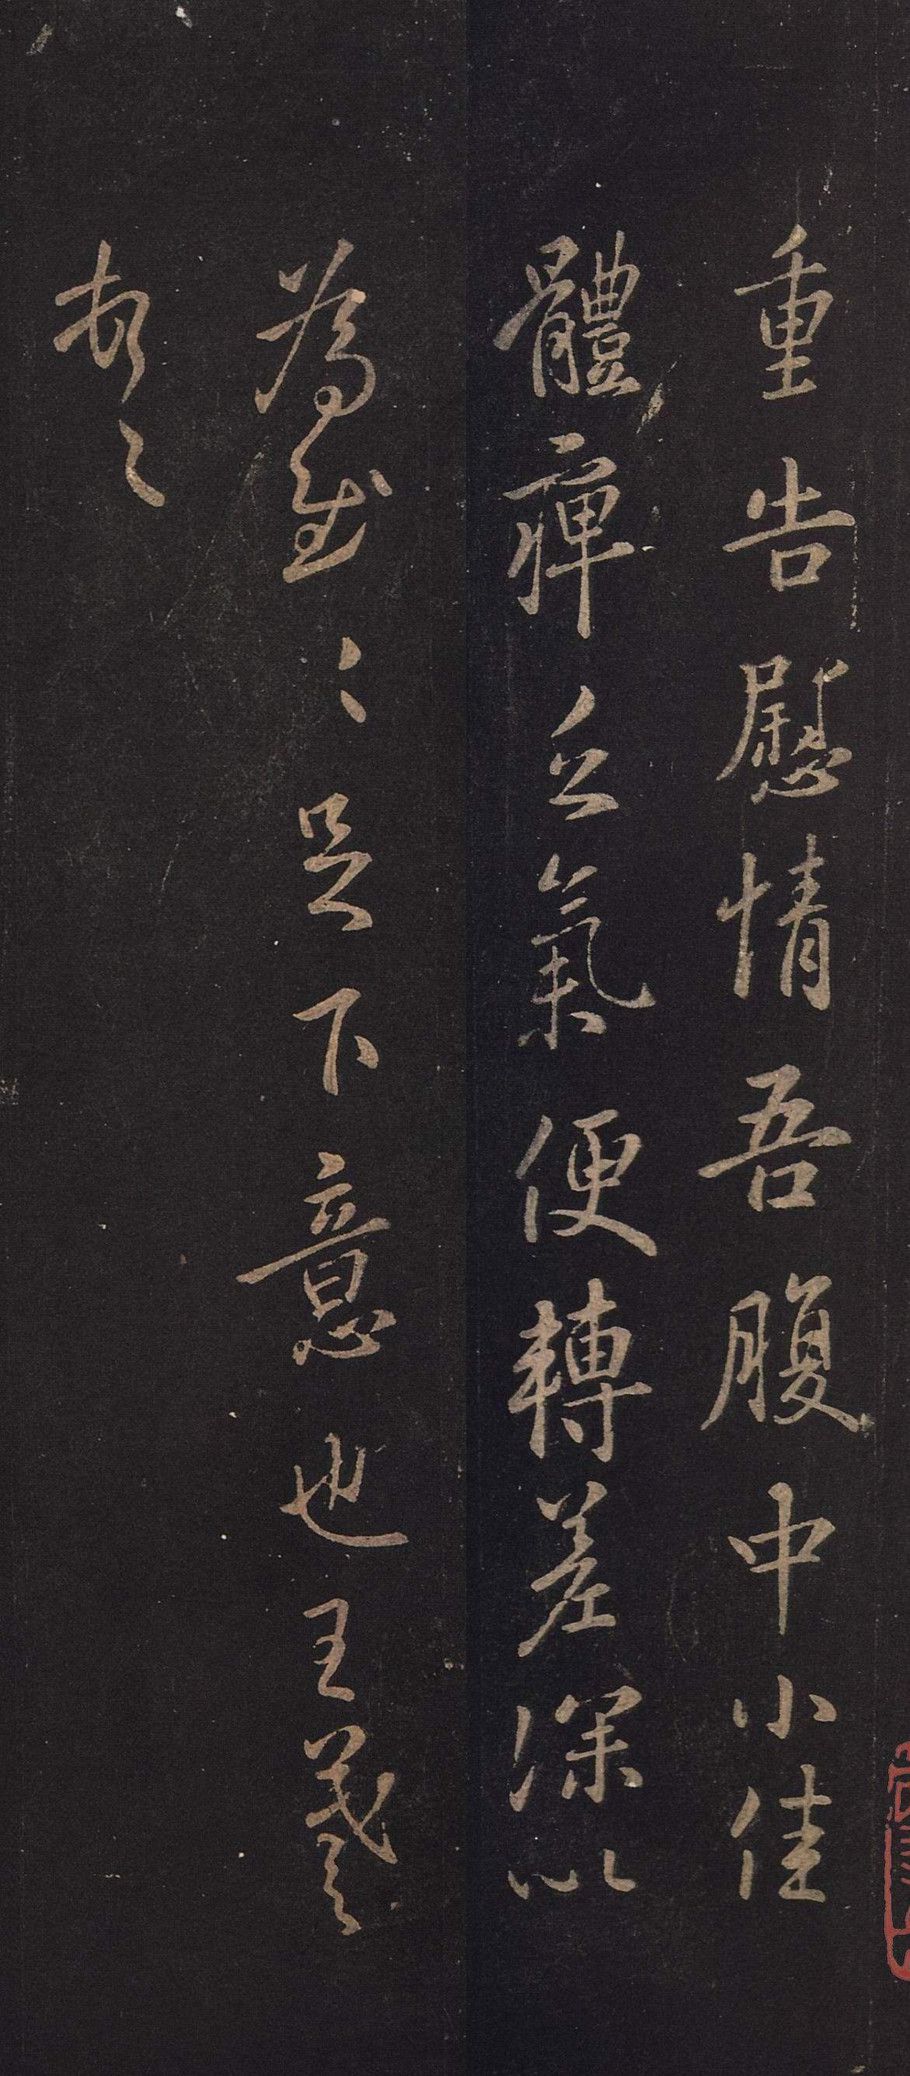 重告慰情吾腹中小佳
體痺乏氣便轉差深以
為慰〻足下意也王羲之
頓〻